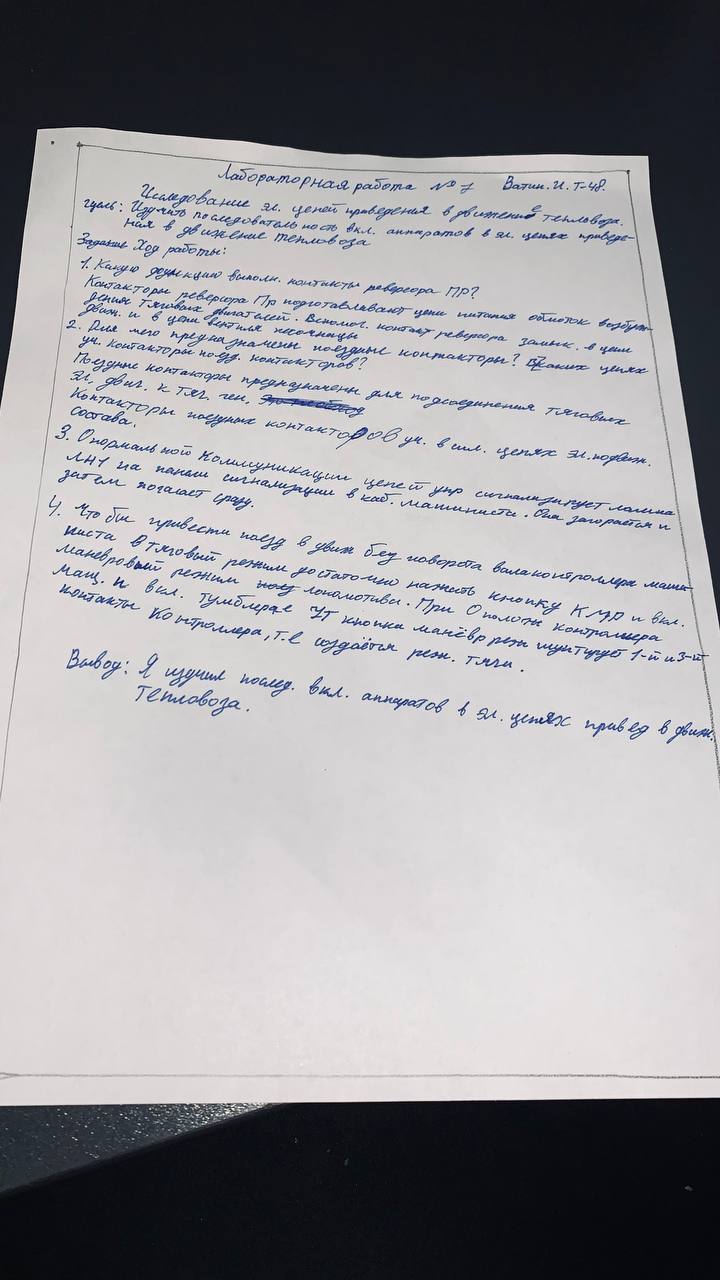 Лабораторная работа №7 Ватин. И. Т-48.
Исследование эл. цепей приведения в движение тепловоза.
Цель: Изучить последовательность вкл. аппаратов в эл. цепях приведе-
ния в движение тепловоза
Задание Ход работы:
1. Какую функцию выполн. контакты реверсора ПР?
Контакторы реверсора Пр подготавливают цепи питания обмоток возбуж-
дения Тяговых двигателей. Вспомог. контакт реверсора замык. в цепи
движ. и в цепи вентиля песочницы
2. Для чего предназначены поездные контакторы? В каких цепях
уч. контакторы поезд. контакторов?
Поездные контакторы предназначены для подсоединения тяговых
эл. двиг. к тяг. ген.
Контакторы поездных контакторов уч. в сил. цепях эл. подвиж.
состава.
3. О нормальной Коммуникации цепей упр сигнализирует лампа
ЛН1 на панели сигнализации в каб. машиниста. Она загорается и
затем погасает сразу.
4. Что бы привести поезд в движ без поворота вала контроллера маши
ниста в Тяговый режим достаточно нажать кнопку КМР и вкл.
маневровый режим локомотивы. При 0 полож контроллера
маш. и вкл. тумблера УТ кнопка манёвр реж шунтирует 1-й и 3-й
контакты Контроллера, т.е создаётся реж. тяги.
Вывод: Я изучил послед. вкл. аппаратов в эл. цепях привед в движ.
Тепловоза.